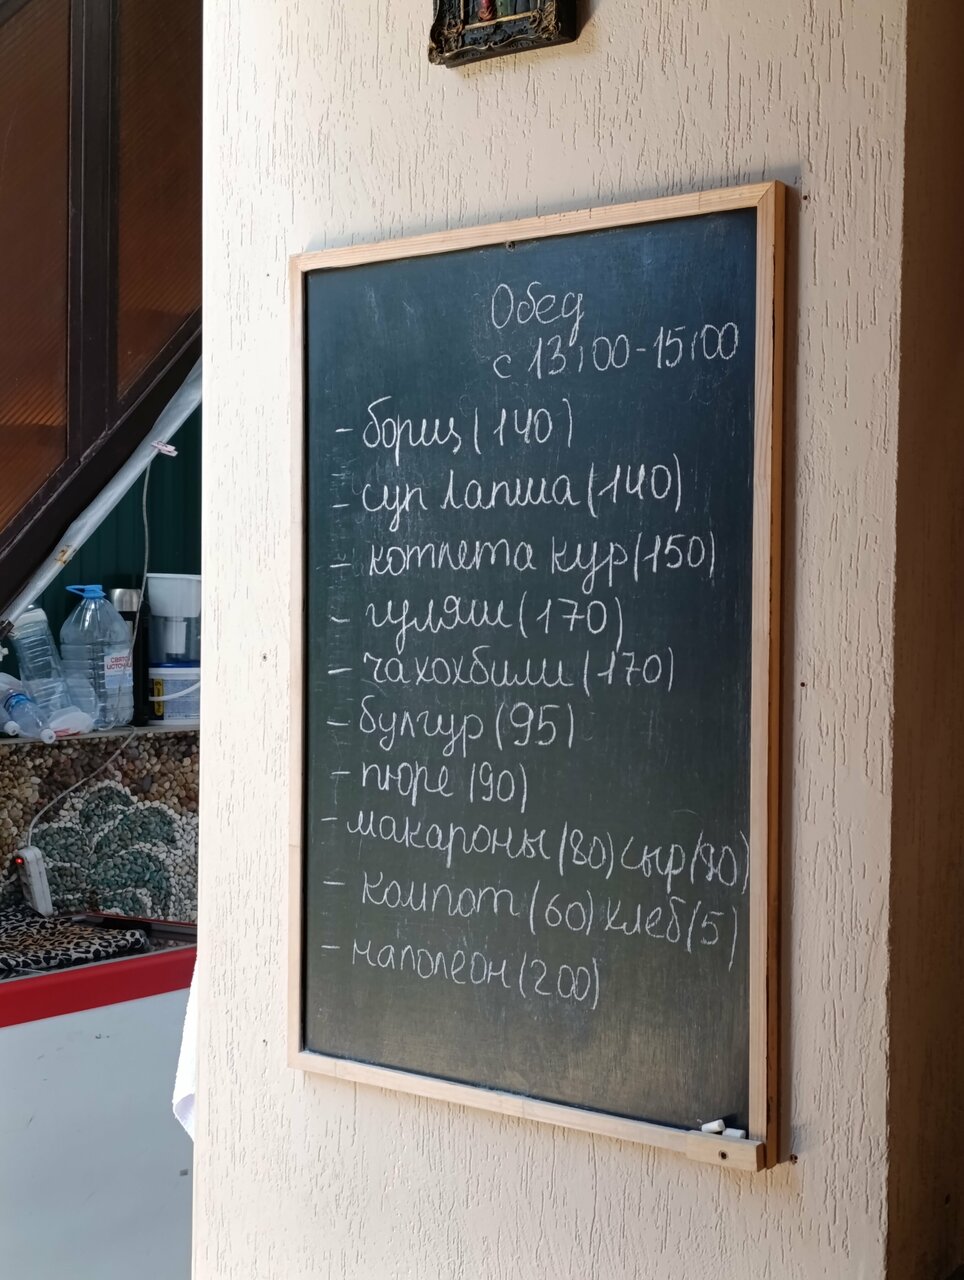 Обед
с 13:00-15:00
- борщ (140)
- суп лапша (140)
- котлета кур (150)
- гуляш (170)
- чахохбили (170)
- булгур (95)
- пюре (90)
- макароны (80) сыр (90)
- компот (60) хлеб (5)
- наполеон (200)
СВЯТОЙ
ИСТОЧНИК